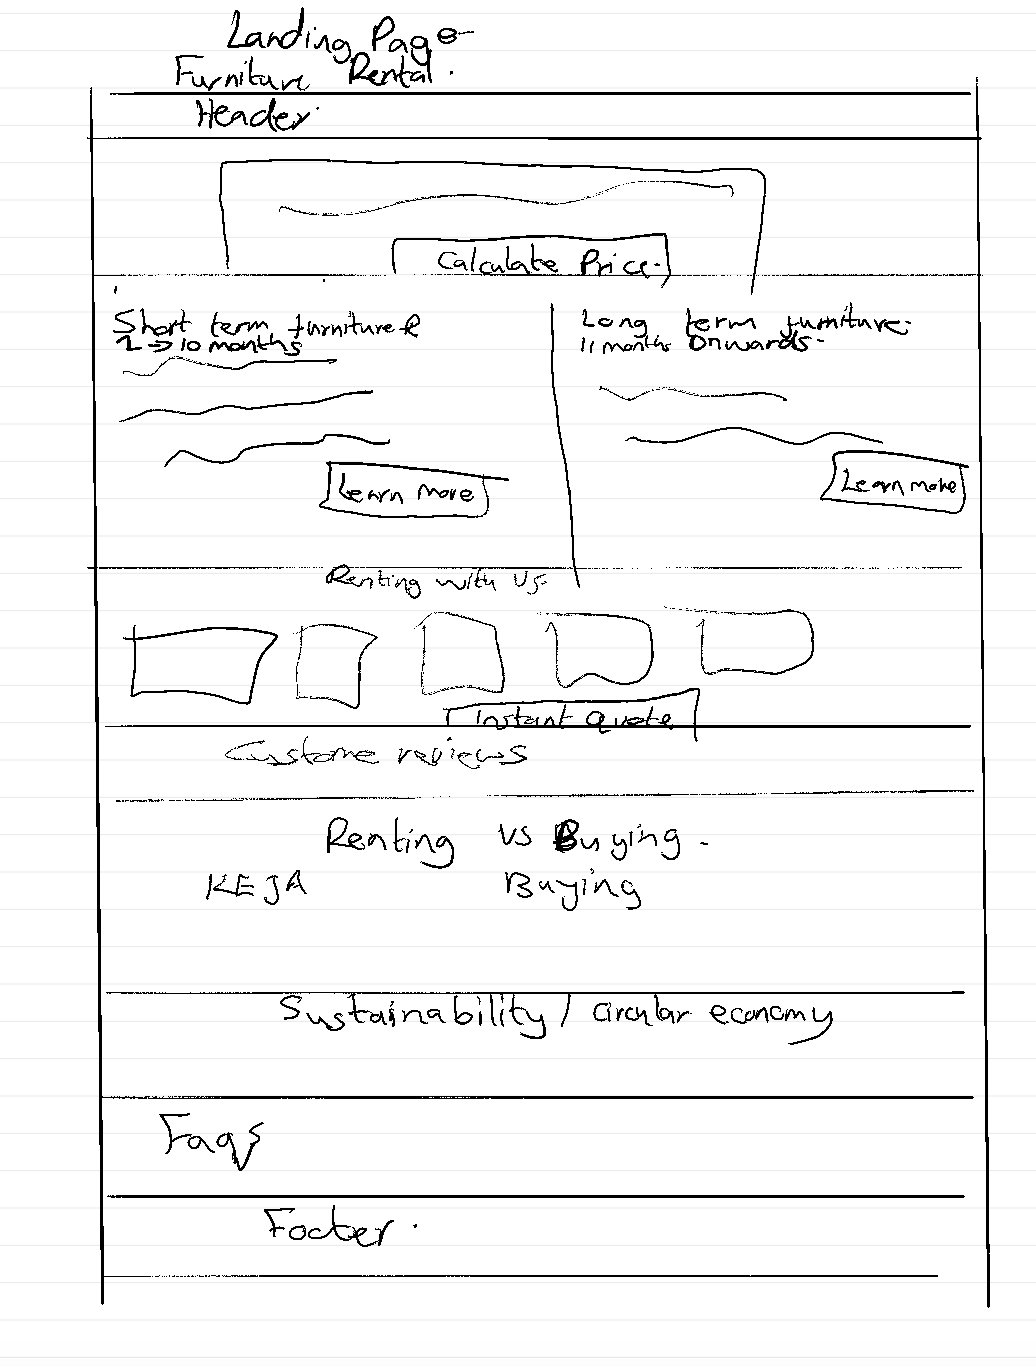 Landing Page
Furniture Rental.
Header
Calculate Price.
Short term furniture
→ 10 months
Learn More
Long term furniture.
11 months Onwards.
Learn more
Renting with us.
Instant Quote
Custome reviews
Renting vs Buying.
KEJA Buying
Sustainability / circular economy
Faqs
Footer.